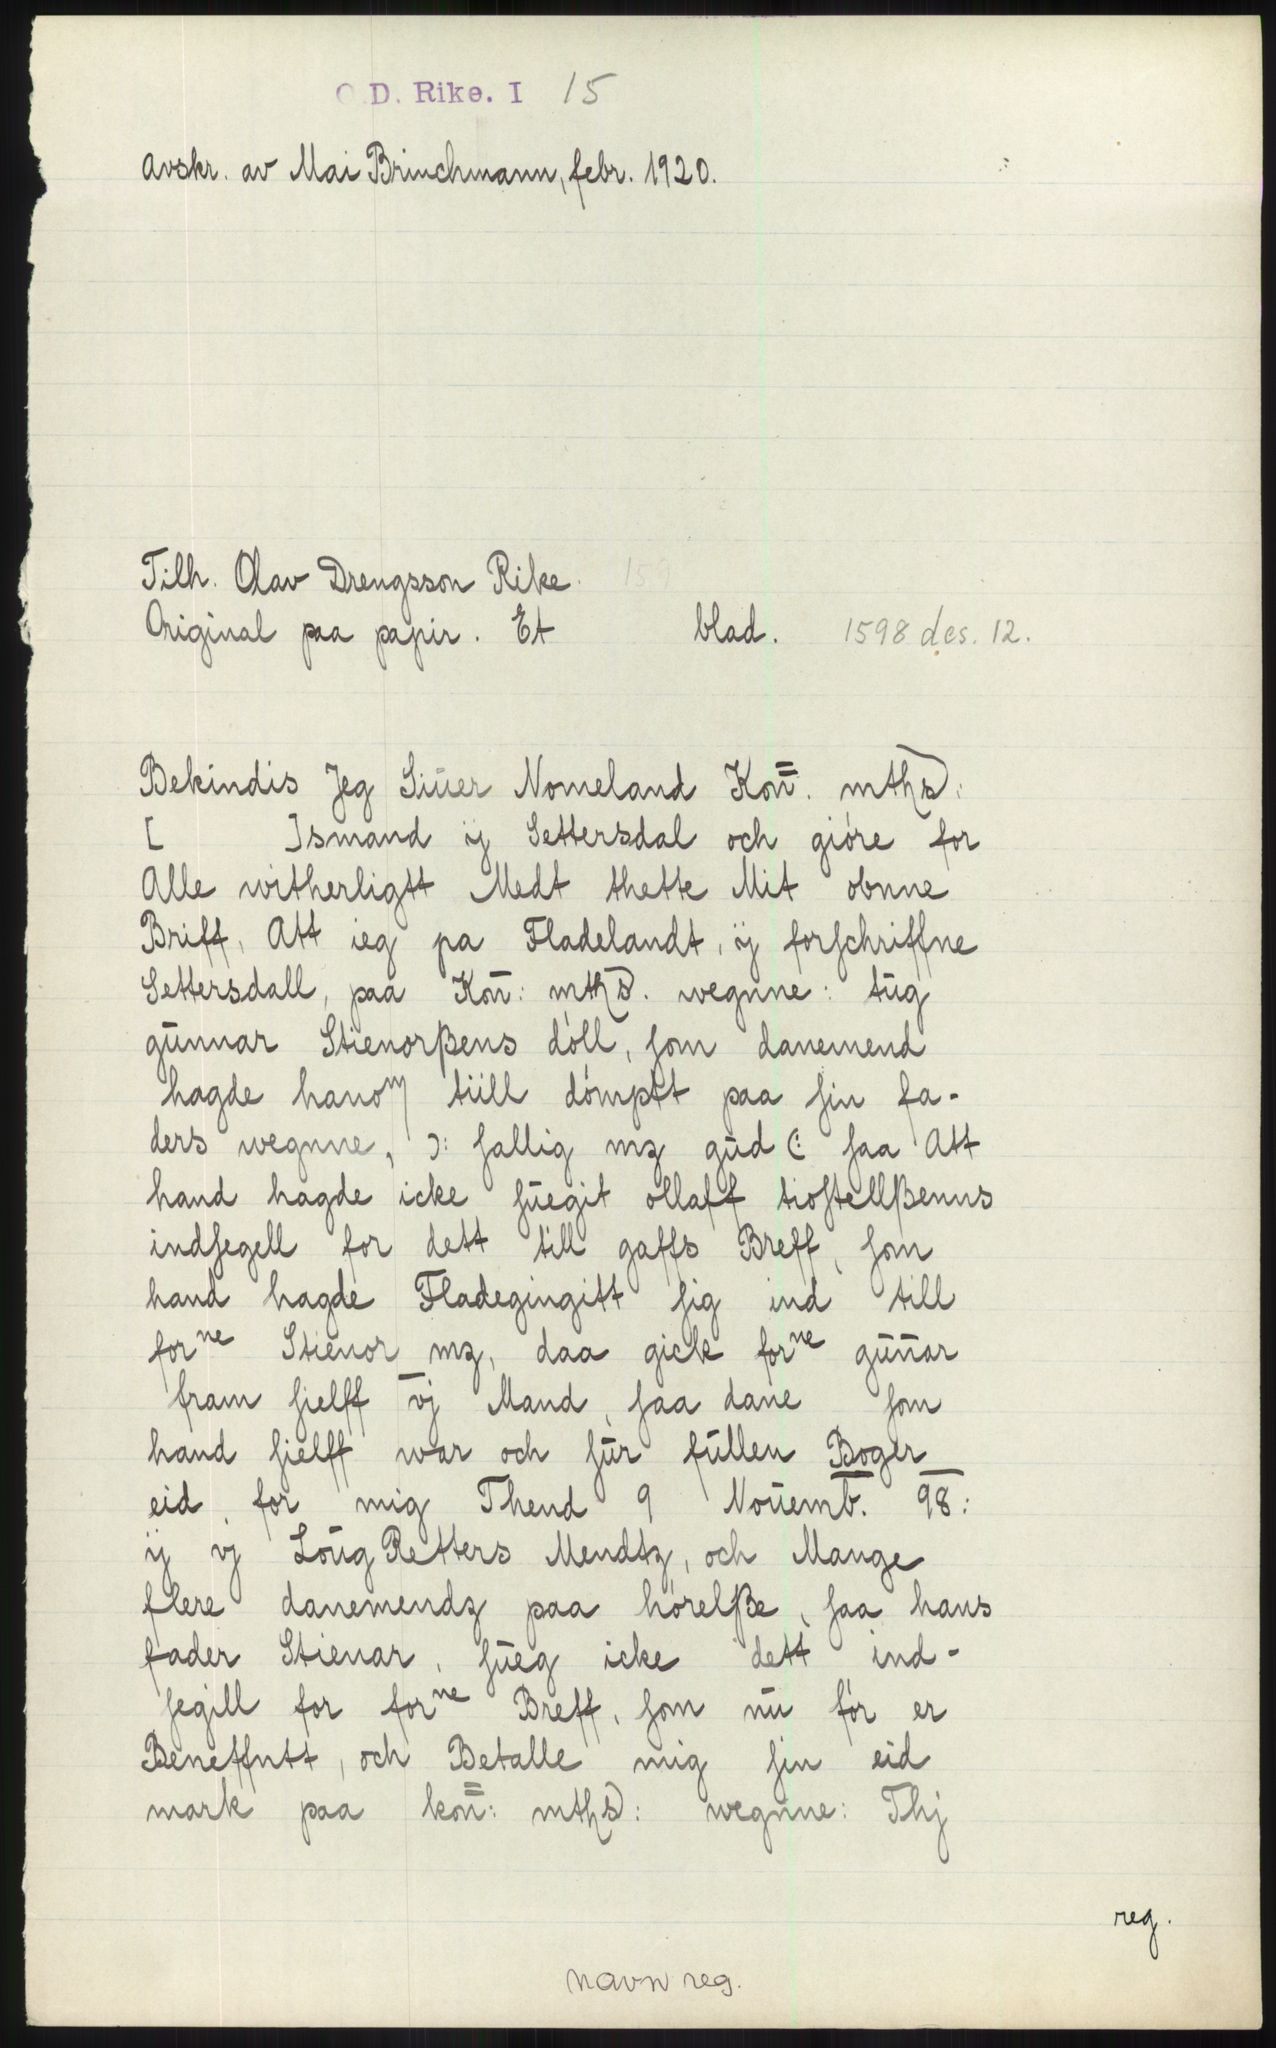 O.D. Rike. I 15
Avskr. av Mai Brinchmann, febr. 1920.
Tilh. Olav Drengsson Rike. 159
Original paa papir. Et blad. 1598 des. 12.
Bekindis Jeg Siūer Nomeland Kon̄. mths:
[ ]smand ij Settersdal och gióre for
Alle witherligtt Medt thette Mit obnne
Briff, Att ieg pa Fladelandt, ij forschriffne
Settersdall, paa Kon̄: mths. wegnne: tūg
gūnnar Stienorßens dóll, som danemend
hagde hanom tiill dómptt paa sin fa-
ders wegnne, ): sallig mz gūd (: saa Att
hand hagde icke sūegit ollaff tiostellßenns
indsegell for dett till gaffs Breff, som
hand hagde Fladegingitt sig ind till
forne Stienor mz, daa gick forne gūn̄ar
fram sielff vj Mand, saa dane som
hand sielff war och sūr fūllen Boger
eid, for mig Thend 9 Noūemb. 98:
ij vj LoūgRetters Mendtz, och Mange
flere danemendz paa hórelße, saa hans
fader Stienar, sūeg icke dett ind-
segill for forne Breff, som nū fór er
Beneffntt, och Betalle mig sin eid
mark paa kon̄: mths: wegnne: Thj
reg.
navn reg.